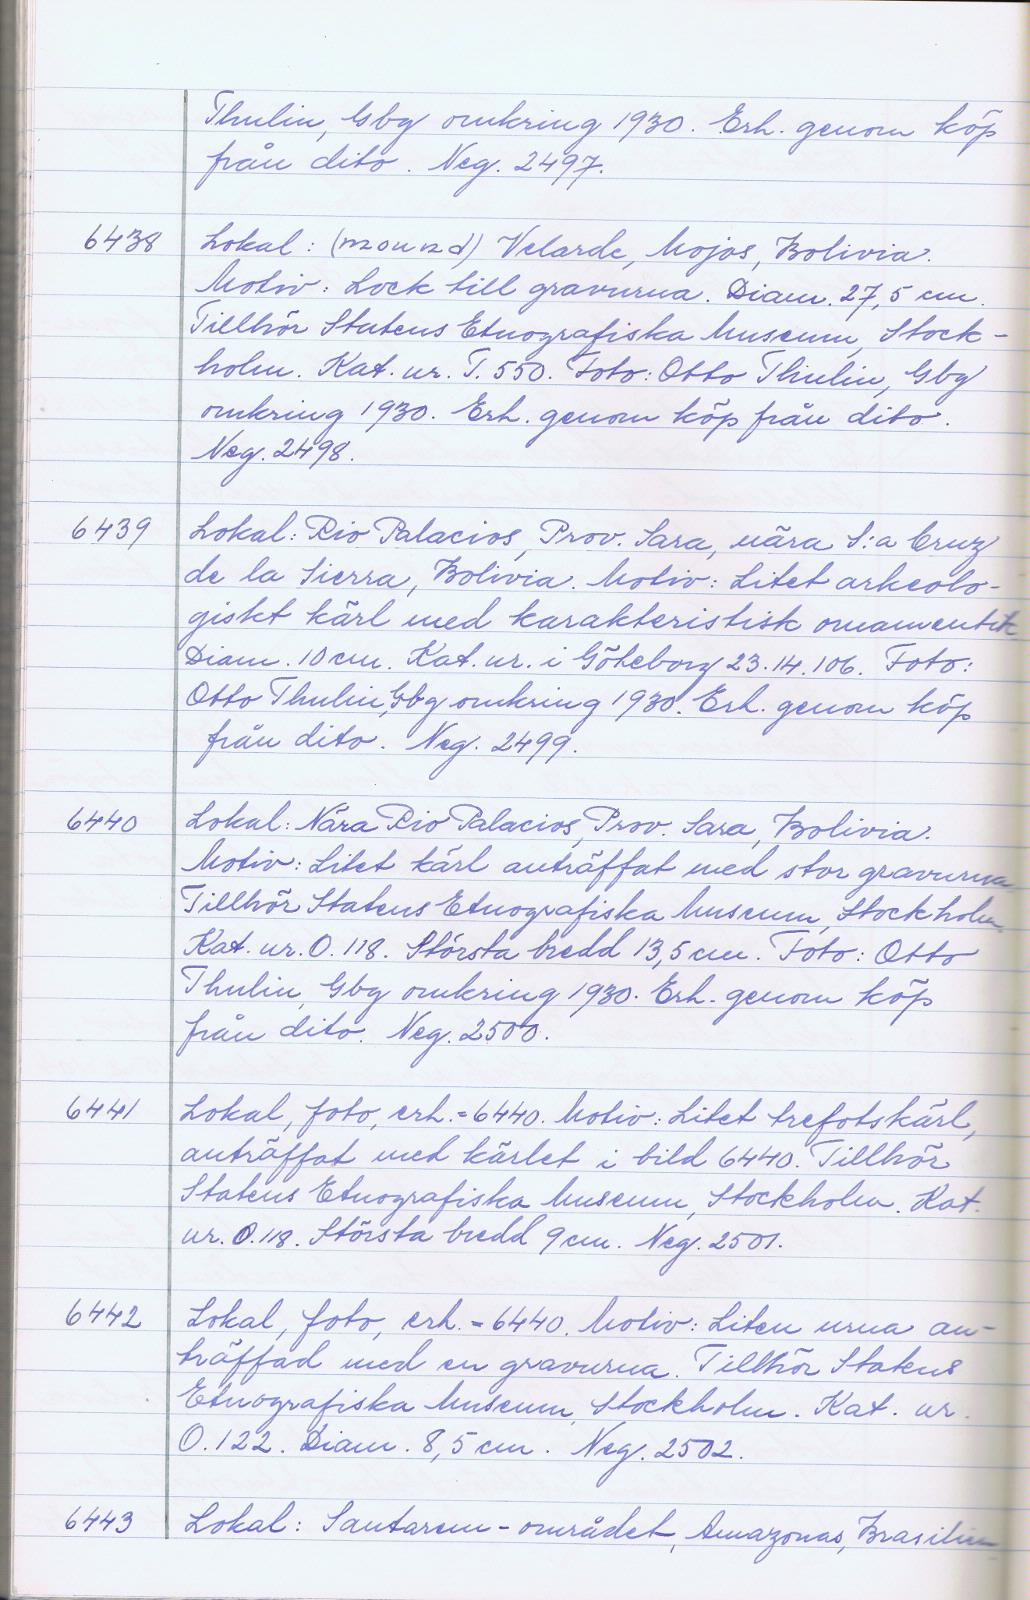 Thulin, Gbg omkring 1930. Erh. genom köp
från dito. Neg. 2497.
6438 Lokal: (mound) Velarde, Mojos, Bolivia.
Motiv: Lock till gravurna. Diam. 27,5 cm.
Tillhör Statens Etnografiska Museum, Stock-
holm. Kat. nr. T. 550. Foto: Otto Thulin, Gbg
omkring 1930. Erh. genom köp från dito.
Neg. 2498.
6439 Lokal: Rio Palacios, Prov. Sara, nära S:a Cruz
de la Sierra, Bolivia. Motiv: Litet arkeolo-
giskt kärl med karakteristisk ornamentik
Diam. 10 cm. Kat. nr. i Göteborg 23.14.106. Foto:
Otto Thulin, Gbg omkring 1930. Erh. genom köp
från dito. Neg. 2499.
6440 Lokal: Nära Rio Palacios, Prov. Sara, Bolivia.
Motiv: Litet kärl anträffat med stor gravurna
Tillhör Statens Etnografiska Museum, Stockholm.
Kat. nr. O. 118. Största bredd 13,5 cm. Foto: Otto
Thulin, Gbg omkring 1930. Erh. genom köp
från dito. Neg. 2500.
6441 Lokal, foto, erh. = 6440. Motiv: Litet trefotskärl,
anträffat med kärlet i bild 6440. Tillhör
Statens Etnografiska Museum, Stockholm. Kat.
nr. O. 118. Största bredd 9 cm. Neg. 2501.
6442 Lokal, foto, erh. = 6440. Motiv: Liten urna an-
träffad med en gravurna. Tillhör Statens
Etnografiska Museum, Stockholm. Kat. nr.
O. 122. Diam. 8,5 cm. Neg. 2502.
6443 Lokal: Santarem-området, Amazonas, Brasilien